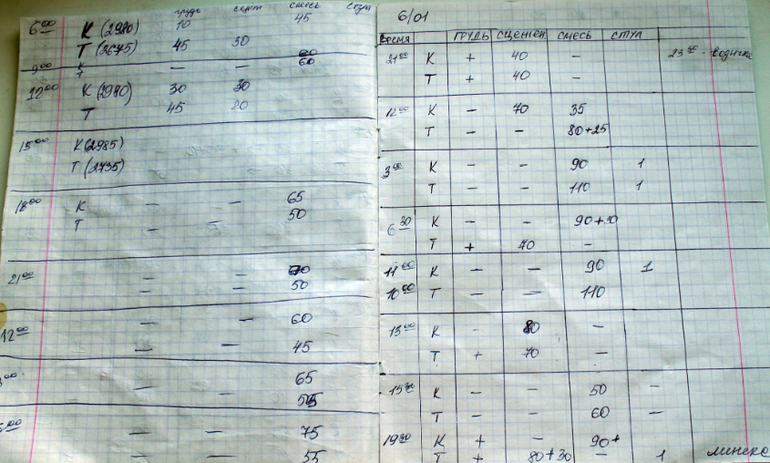 грудь сцеж смесь стул
6 00 К (2980) 10 45
Т (2675) 45 30
9 00 К — — 60
Т
12 00 К (2980) 30 30
Т 45 20
15 00 К (2985)
Т (2735)
18 00 К — — 65
Т — — 50
21 00 — —
— — 50
12 00 — — 60
— — 45
00 — — 65
— —
00 — — 75
— — 55
6/01
Время ГРУДЬ СЦЕЖЕН СМЕСЬ СТУЛ
21 00 К + 40 — 23 00 - водичка
Т + 40 —
12 00 К — 70 35
Т — — 80+25
3 00 К — — 90 1
Т — — 110 1
6 30 К — —
Т + 70 —
11 00 К — — 90 1
10 00 Т — — 110
13 00 К - 80 —
Т + 70 —
15 00 К — — 50 —
Т — — 60 —
19 00 К + — 90+
Т + 80+30 — 1